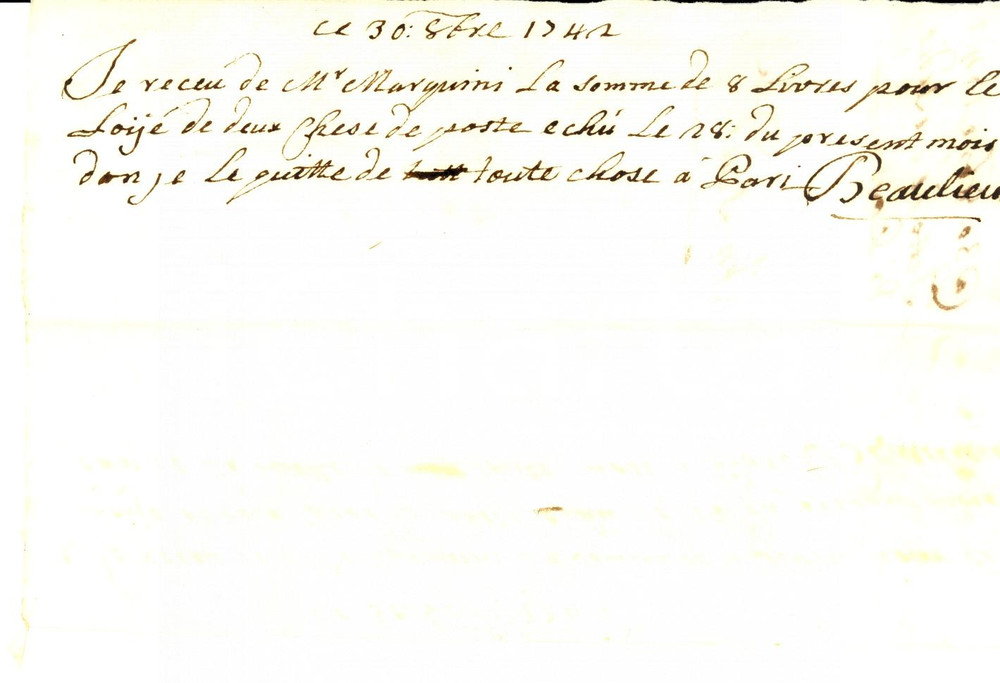 ce 30: 8bre 1742
Je receu de Mr Marquini La somme de 8 Livres pour le
Loijé de deux Chese de poste echû Le 28: du present mois
don je le quitte de toute chose à Pari Beaulieu